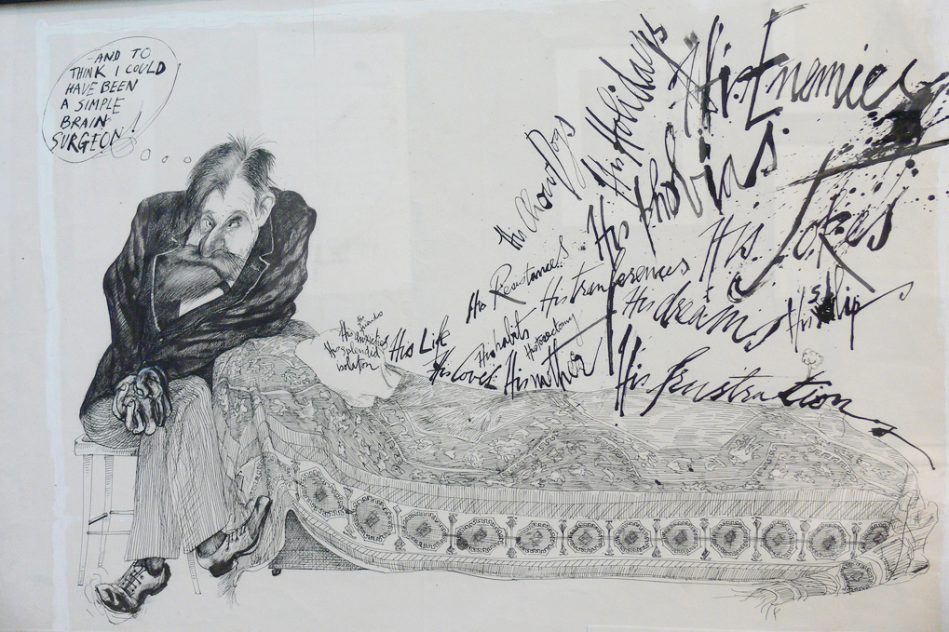 -AND TO
THINK I COULD
HAVE BEEN
A SIMPLE
BRAIN
SURGEON!
His Enemies
His Holidays
His Phobias
His Chow Dogs
His Jokes
His Resistances
His tranferences
His dreams
His slip
His Life
His habits
His Love
His Mother
His frustration
His splendid
isolation